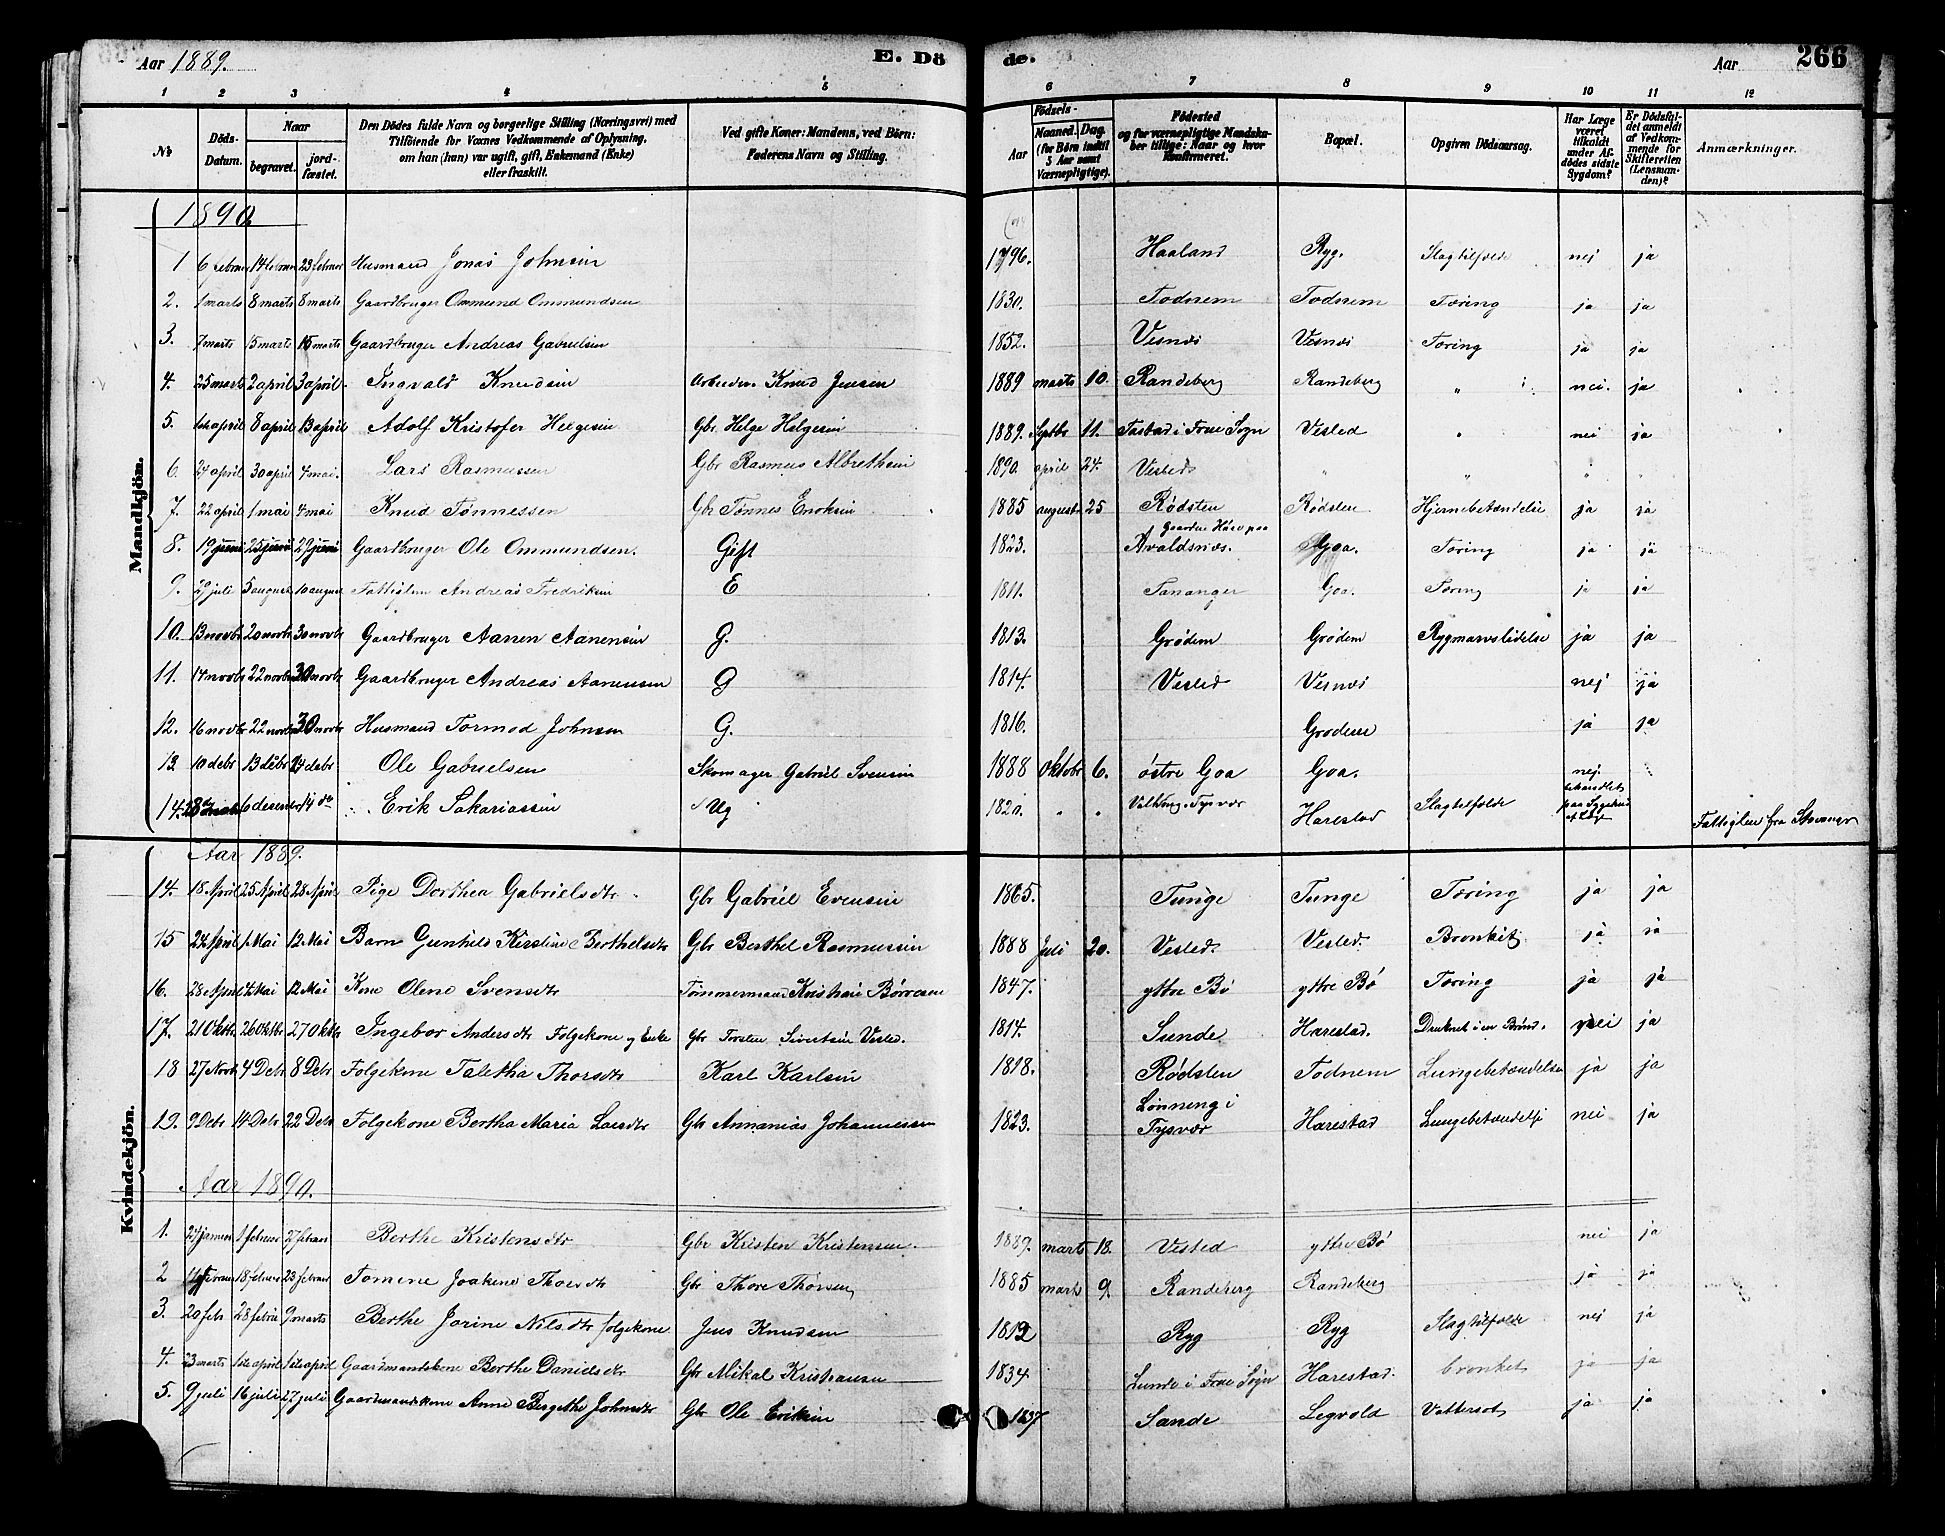 Aar 1889. E. Dö de. Aar 266
1 2 3 4 5 6 7 8 9 10 11 12
№ Döds-Datum. Naar begravet. jordfæstet. Den Dödes fulde Navn og borgerlige Stilling (Næringsvei) med Tilföiende for Voxnes Vedkommende af Oplysning, om han (hun) var ugift, gift, Enkemand (Enke) eller fraskilt. Ved gifte Koner: Mandens, ved Börn: Faderens Navn og Stilling. Födsels- Aar Maaned. Dag. (for Börn indtil 5 Aar samt Værnepligtige). Födested og for værnepligtige Mandskaber tillige: Naar og hvor konfirmeret. Bopæl. Opgiven Dödsaarsag. Har Læge været tilkaldt under Afdödes sidste Sygdom? Er Dödsfaldet anmeldt af Vedkommende for Skifteretten (Lensmanden)? Anmærkninger.
Mandkjön.
1890
1 6 februar 14 februar 23 februar Husmand Jonas Johnsen 1796. Haaland Ryg. Slagtilfælde nej ja
2. 1 marts 8 marts 8 marts Gaardbruger Ommund Ommundsen 1830. Todnem Todnem Tæring ja ja
3. 7 marts 15 marts 15 marts Gaardbruger Andreas Gabrielsen 1852. Visnæs Visnæs Tæring ja ja
4. 25 marts 2 april 3 april Ingvald Knudsen Arbeider Knud Jensen 1889 marts 10. Randeberg Randeberg " nei. ja
5. 1ste april 8 april 13 april Adolf Kristofer Helgesen Gbr Helge Helgesen 1889. Septbr 11. Tastad i Frue Sogn Visted " nei ja
6. 24 april 30 april 4 mai. Lars Rasmussen Gbr Rasmus Albrethsen 1890. april 24. Visted " " " "
7. 22 april 1 mai 4 mai Knud Tønnessen Gbr Tønnes Enoksen 1885 august 25 Rødsten Rødsten Hjernebetændelse ja ja
8. 19 juni 25 juni 29 juni Gaardbruger Ole Ommundsen. Gift 1823. Gaarden paa Avaldsnæs. Goa. Tæring ja ja
9. 29 juli 5 august 10 august Fattiglem Andreas Fredriksen E 1811. Tananger Goa. Tæring ja ja
10. 13 novbr 20 novbr 30 novbr Gaardbruger Aanen Aanensen G. 1813. Grødem Grødem Rygmarvslidelse ja ja
11. 14 novbr 22 novbr 30 novbr Gaardbruger Andreas Aanensen G 1814. Visted Visnæs nej ja
12. 16 novbr 22 novbr 30 novbr Husmand Tormod Johnsen G. 1816. Grødem ja ja
13. 10 debr 13 debr 14 debr Ole Gabrielsen Skomager Gabriel Svensen 1888 Oktobr 6. østre Goa Goa. nej.
14. 28 10 desember 14 do Erik Sakariassen Ug 1820. " " Tysvær Harestad Slagtilfælde behandlet paa Sygehus af Læge Fattiglem fra Stavanger
Kvindekjön.
Aar 1889.
14. 18 April 25 April 28 April Pige Dorthea Gabrielsdtr Gbr Gabriel Evensen 1865. Tunge Tunge Tæring ja ja
15 24 April 1 Mai 12 Mai Barn Gunhild Kirstine Berthelsdtr Gbr Berthel Rasmussen 1888 Juli 20. Visted. Visted. Bronkit. ja ja
16. 28 April 4 Mai 12 Mai Kone Olene Svensdtr Tømmermand Kristian Børresen 1847. yttre Bø yttre Bø Tæring ja ja
17. 21 Oktbr 26 Oktbr 27 Oktbr Ingebor Andersdtr Folgekone og Enke Gbr Torsten Sivertsen Visted. 1814. Sunde Harestad. Druknet i en Brønd. nei ja
18 27 Novbr 4 Debr 8 Debr Folgekone Taletha Thorsdtr Karl Karlsen 1818. Rødsten Todnem Lungebetændelse ja ja
19. 9 Debr 14 Debr 22 Debr Folgekone Bertha Maria Larsdtr Gbr Annanias Johannessen 1823. Lønning i Tysvær Harestad Lungebetændelse nei ja
Aar 1890.
1. 24 januar 1 februar 27 februar Berthe Kristensdtr Gbr Kristen Kristensen. 1889. marts 18. Visted yttre Bø nei ja
2 februar 18 februar 23 februar Tomine Joakine Thorsdtr Gbr Thore Thorsen 1885 marts 9. Randeberg Randeberg ja ja
3. 20 febr 28 februar 9 marts Berthe Jorine Nilsdtr folgekone Jens Knudsen 1812 Ryg Ryg Slagtilfælde nej ja
4. 23 marts 1ste april 1ste april Gaardmandskone Berthe Danielsdtr Gbr Mikal Kristiansen 1834 Lunde i Frue Sogn Harestad. bronkit ja ja
5. 9 juli 16 juli 27 juli Gaardmandskone Anne Bergithe Johnsdtr Gbr Ole Eriksen 1837 Sande Legvold Vattersot ja ja